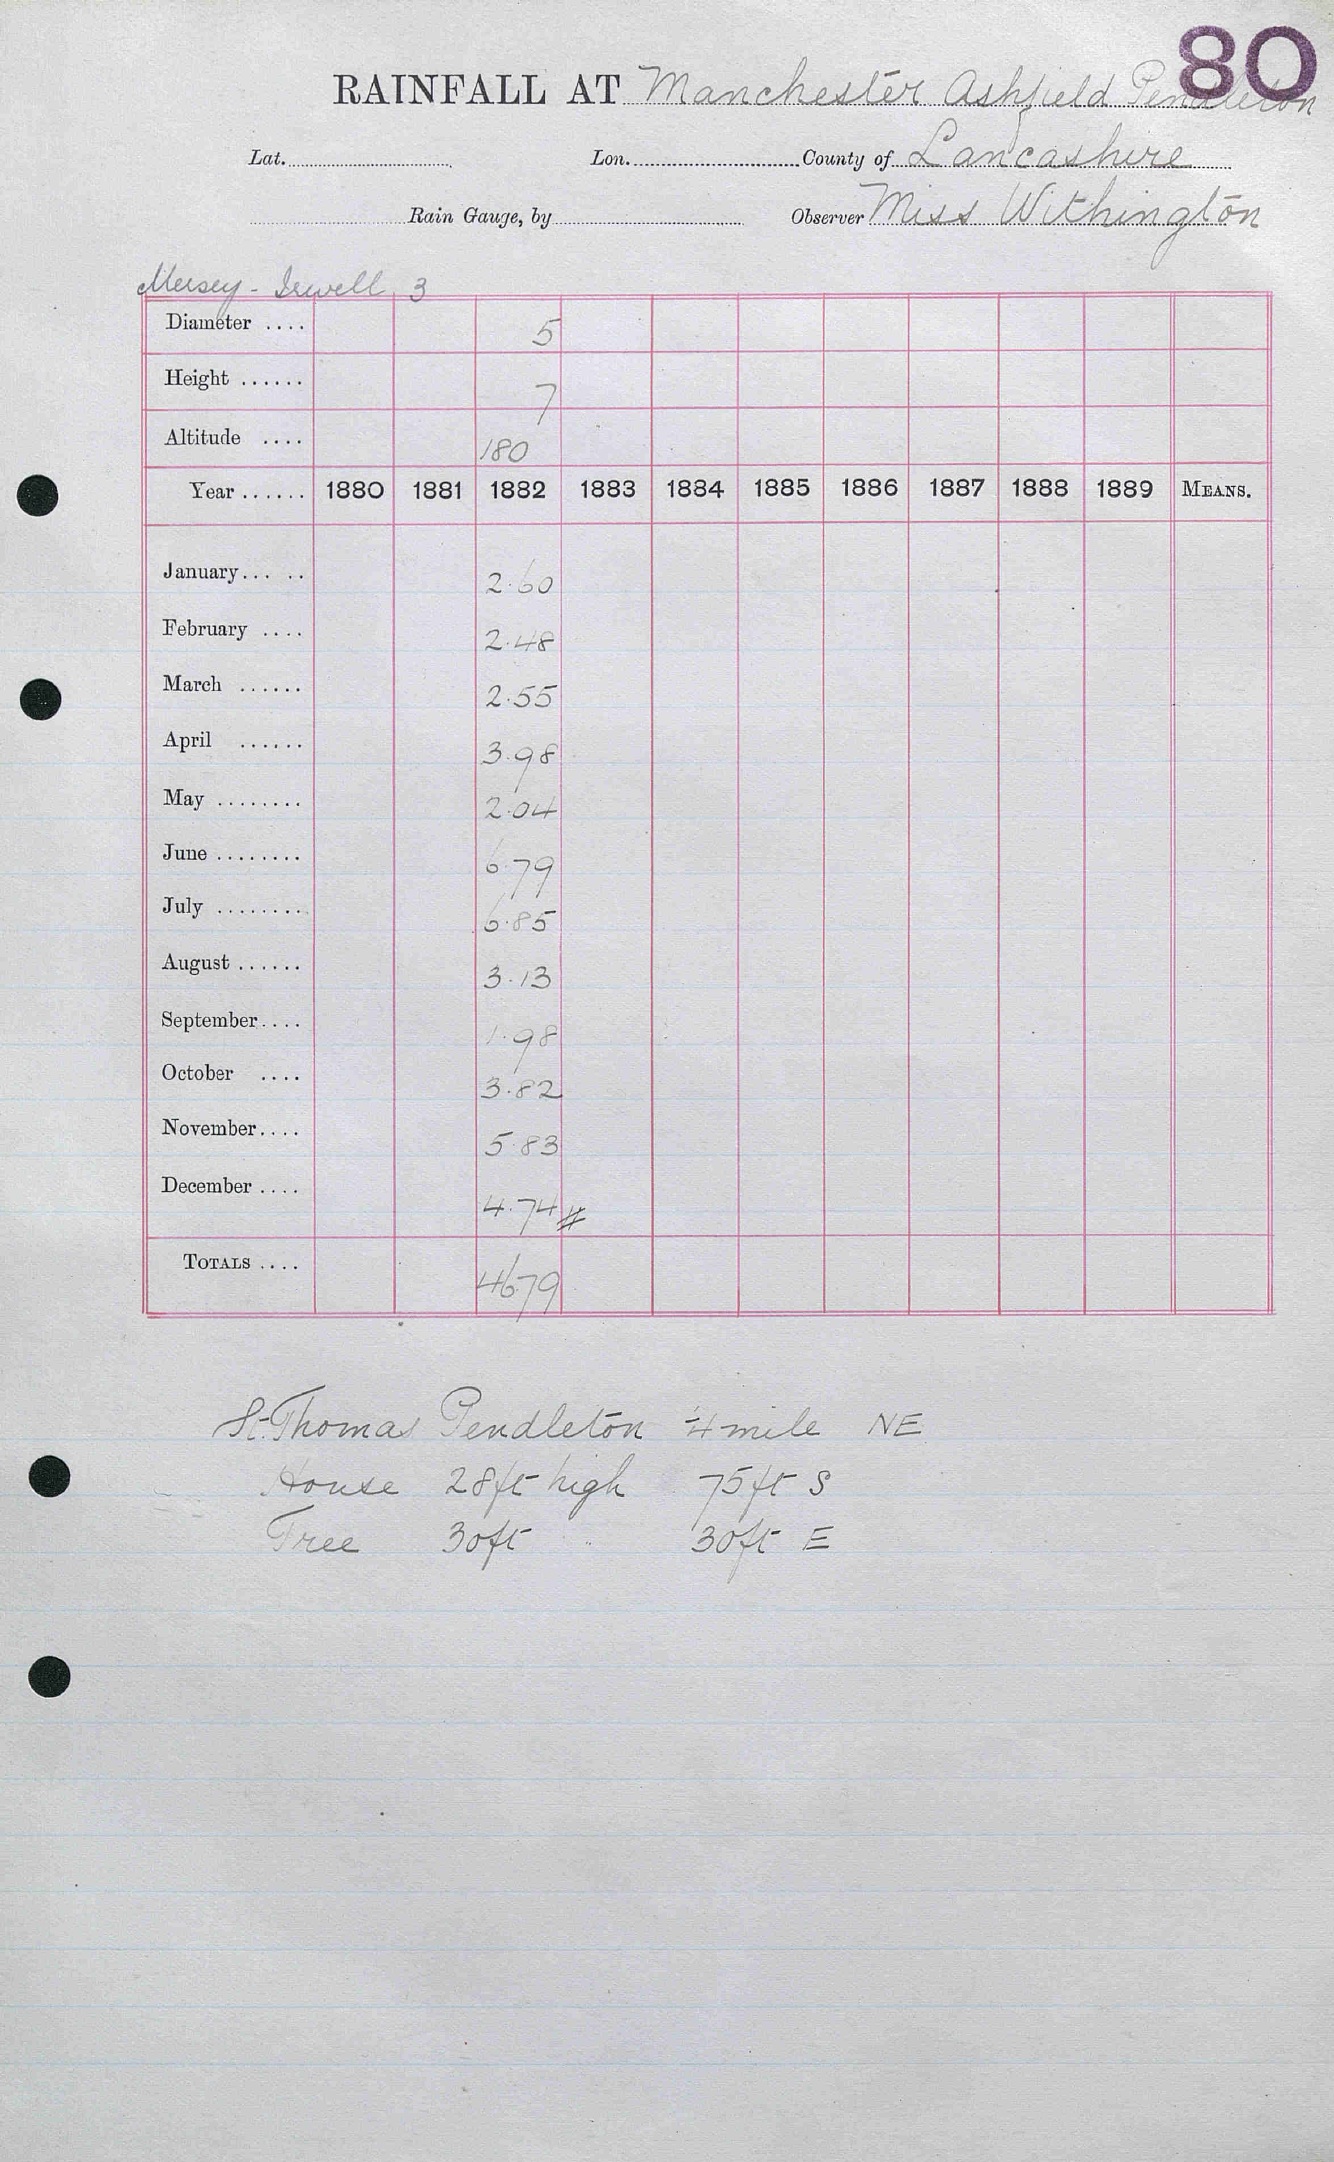 80
RAINFALL AT Manchester Ashfield Pendleton
Lat. Lon. County of Lancashire
Rain Gauge, by Observer Miss Withington
Mersey - Irwell 3
Diameter .... 5
Height ...... 7
Altitude .... 180
Year ...... 1880 1881 1882 1883 1884 1885 1886 1887 1888 1889 MEANS.
January... .. 2.60
February .... 2.48
March ...... 2.55
April ...... 3.98
May ........ 2.04
June ........ 6.79
July ........ 6.85
August ...... 3.13
September.... 1.98
October .... 3.82
November.... 5.83
December .... 4.74 #
TOTALS .... 46.79
St. Thomas Pendleton ¼ mile NE
House 28ft high 75ft S
Tree 30ft " 30ft E